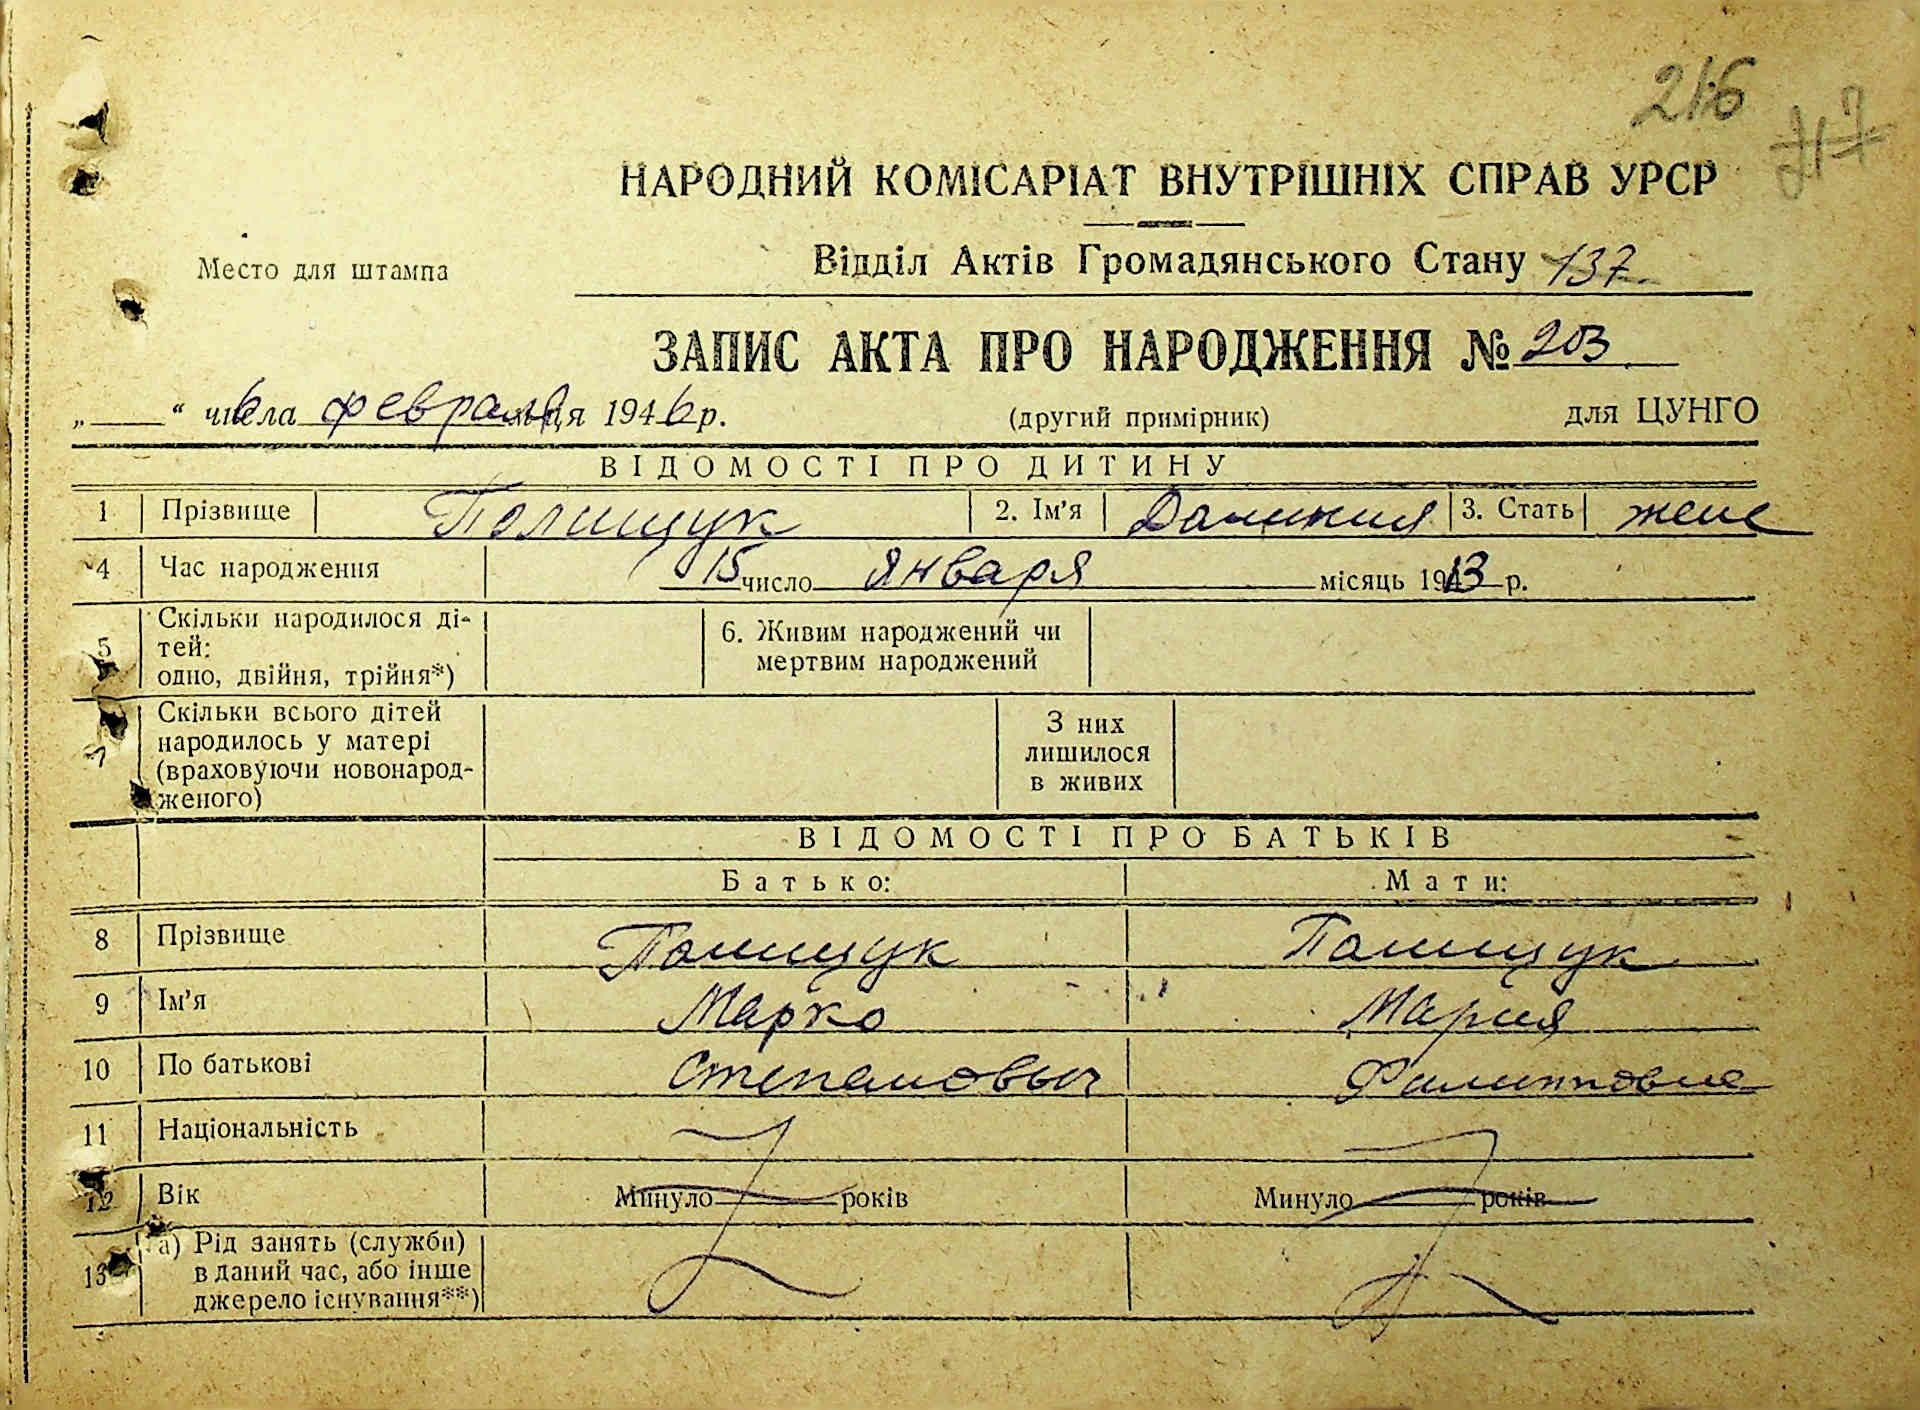 216
217
НАРОДНИЙ КОМІСАРІАТ ВНУТРІШНІХ СПРАВ УРСР
Место для штампа
Відділ Актів Громадянського Стану 137
ЗАПИС АКТА ПРО НАРОДЖЕННЯ № 203
„ “ 6 числа февраля місяця 1946 р. (другий примірник) для ЦУНГО
ВІДОМОСТІ ПРО ДИТИНУ
1 Прізвище Полищук 2. Ім'я 3. Стать жене
4 Час народження 15 число января місяць 1913 р.
5 Скільки народилося ді-
тей:
одно, двійня, трійня*)
6. Живим народжений чи
мертвим народжений
7 Скільки всього дітей
народилось у матері
(враховуючи новонарод-
женого)
З них
лишилося
в живих
ВІДОМОСТІ ПРО БАТЬКІВ
Батько: Мати:
8 Прізвище Полищук Полищук
9 Ім'я Марко Мария
10 По батькові Степанович Филипповна
11 Національність
12 Вік Минуло років Минуло років
13 а) Рід занять (служби)
в даний час, або інше
джерело існування**)